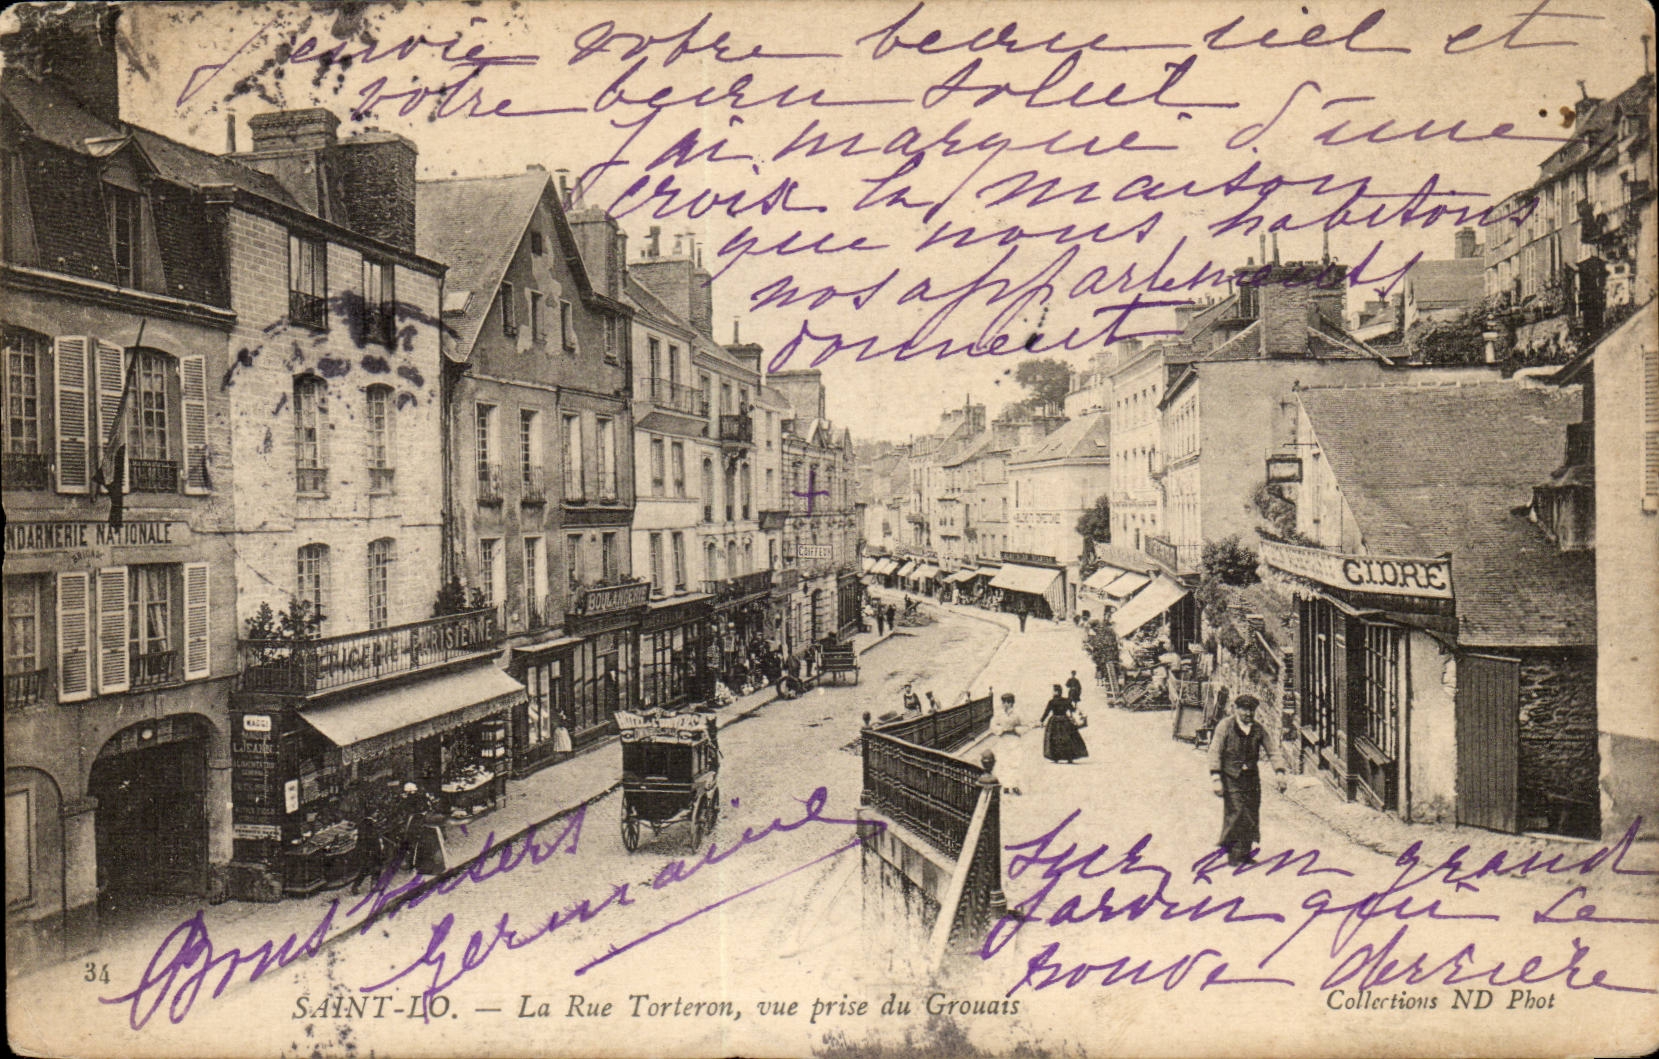 J'envie votre beau ciel et
votre beau soleil
J'ai marqué d'une
croix la maison
que nous habitons
nos appartements
donnent
sur un grand
jardin qui se
trouve derrière
Bons baisers
Germaine
NDARMERIE NATIONALE
EPICERIE PARISIENNE
BOULANGERIE
COIFFEUR
CIDRE
MAGGI
34
SAINT-LO. — La Rue Torteron, vue prise du Grouais
Collections ND Phot